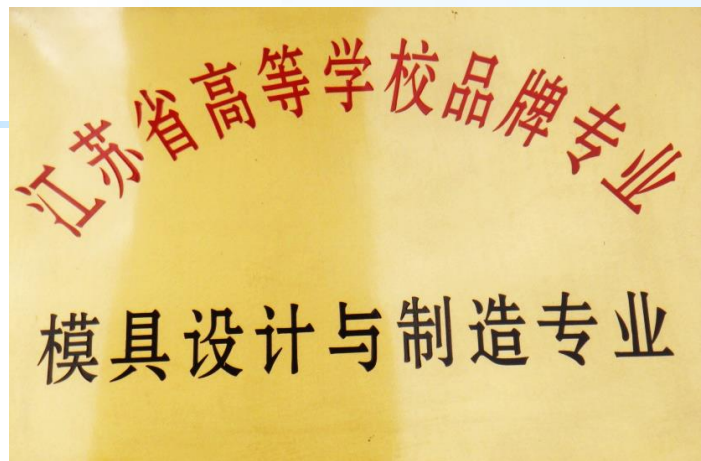 江苏省高等学校品牌专业
模具设计与制造专业